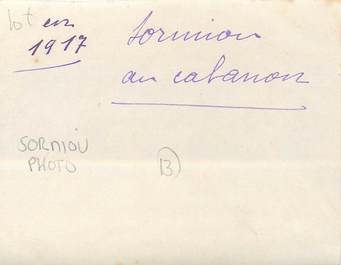 lot en
1917
Sormiou
au cabanon
SORMIOU
PHOTO
13